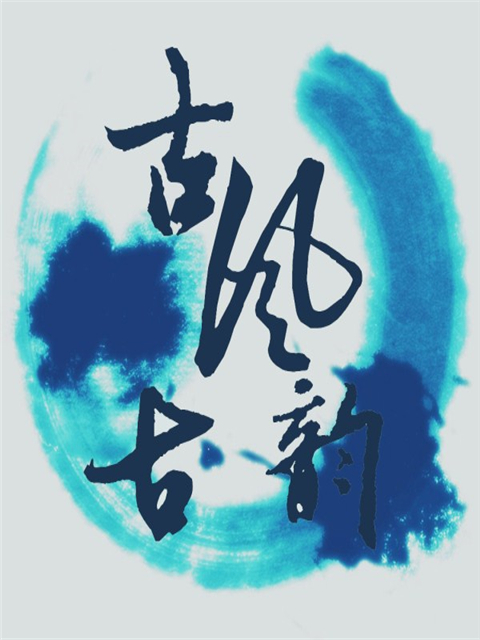 古风
古韵